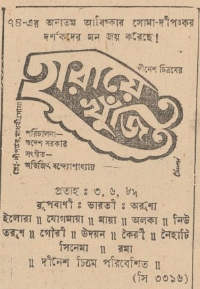 ৭৪-এর অন্যতম আবিষ্কার সোমা-দীপংকর
দর্শকদের মন জয় করেছে!
দীনেশ চিত্রমের
হারায়ে
খুঁজি
পরিচালনা—
স্বদেশ সরকার
সংগীত—
অভিজিৎ বন্দ্যোপাধ্যায়
প্রত্যহ : ৩, ৬, ৮৸
রূপবাণী : ভারতী : অরুণা
ইলোরা ॥ যোগমায়া ॥ মায়া ॥ অলকা ॥ নিউ
তরুণ ॥ গৌরী ॥ উদয়ন ॥ কৈরী ॥ নৈহাটি
সিনেমা ॥ রমা
॥ দীনেশ চিত্রম পরিবেশিত ॥
(সি ৩৩১৬)